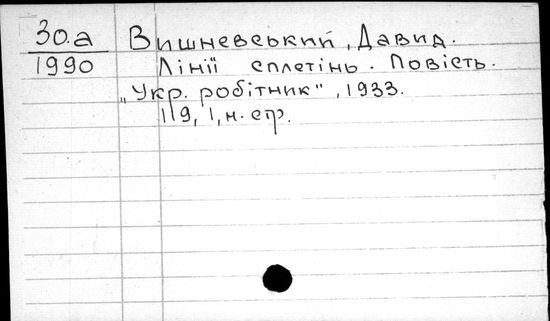 30.а Вишневський, Давид.
1990 Лінії сплетінь. Повість.
„Укр. робітник", 1933.
119, 1, н. стр.